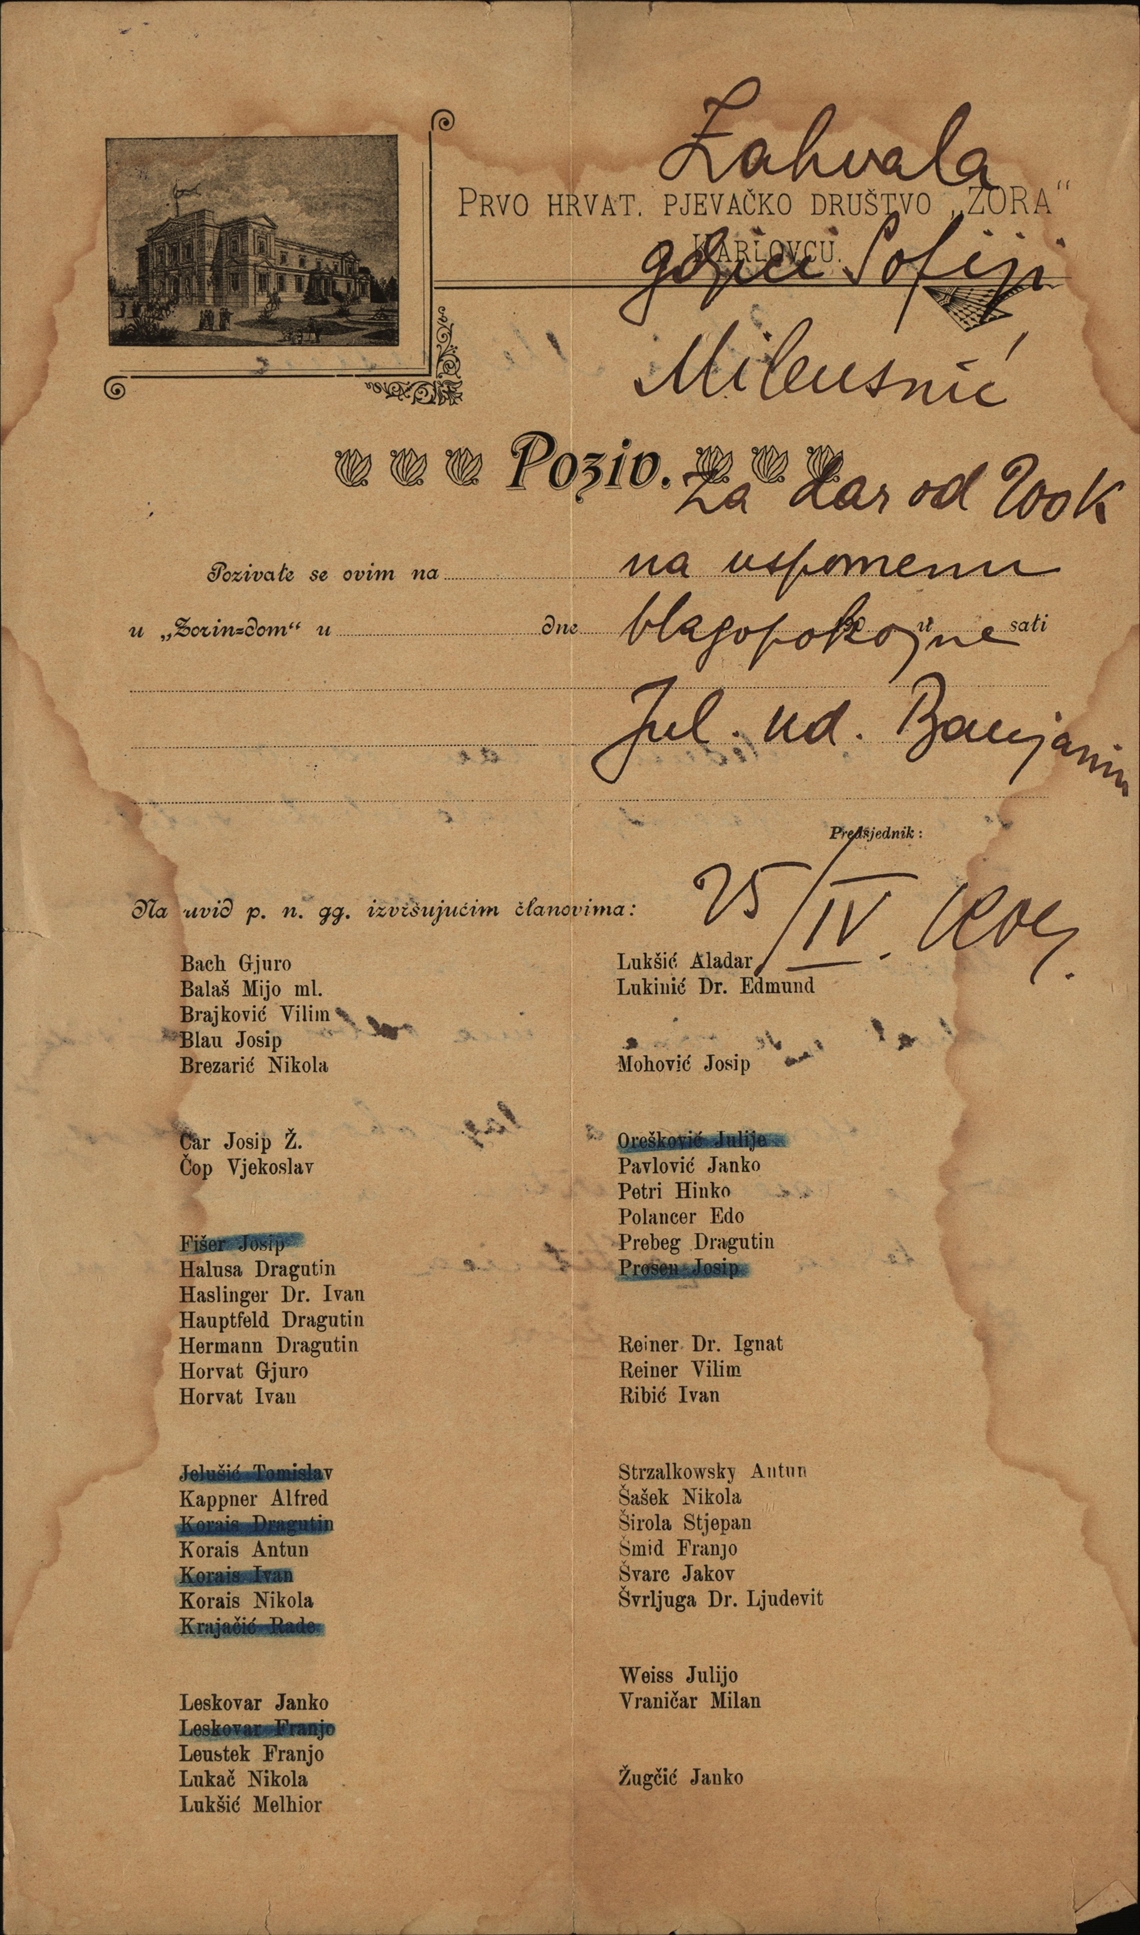 Zahvala
PRVO HRVAT. PJEVAČKO DRUŠTVO „ZORA“
KARLOVCU.
gdjici Sofiji
Mileusnić
Poziv.
Za dar od 200 K
Pozivate se ovim na
na uspomenu
u „Zorin=dom“ u dne u sati
blagopokojne
Jul. ud. Banjanin
Predsjednik:
25/IV.
Na uvid p. n. gg. izvršujućim članovima:
Bach Gjuro
Balaš Mijo ml.
Brajković Vilim
Blau Josip
Brezarić Nikola
Čar Josip Ž.
Čop Vjekoslav
Fišer Josip
Halusa Dragutin
Haslinger Dr. Ivan
Hauptfeld Dragutin
Hermann Dragutin
Horvat Gjuro
Horvat Ivan
Jelušić Tomislav
Kappner Alfred
Korais Dragutin
Korais Antun
Korais Ivan
Korais Nikola
Krajačić Rade
Leskovar Janko
Leskovar Franjo
Leustek Franjo
Lukač Nikola
Lukšić Melhior
Lukšić Aladar
Lukinić Dr. Edmund
Mohović Josip
Orešković Julije
Pavlović Janko
Petri Hinko
Polancer Edo
Prebeg Dragutin
Prosen Josip
Reiner Dr. Ignat
Reiner Vilim
Ribić Ivan
Strzalkowsky Antun
Šašek Nikola
Širola Stjepan
Šmid Franjo
Švarc Jakov
Švrljuga Dr. Ljudevit
Weiss Julijo
Vraničar Milan
Žugčić Janko